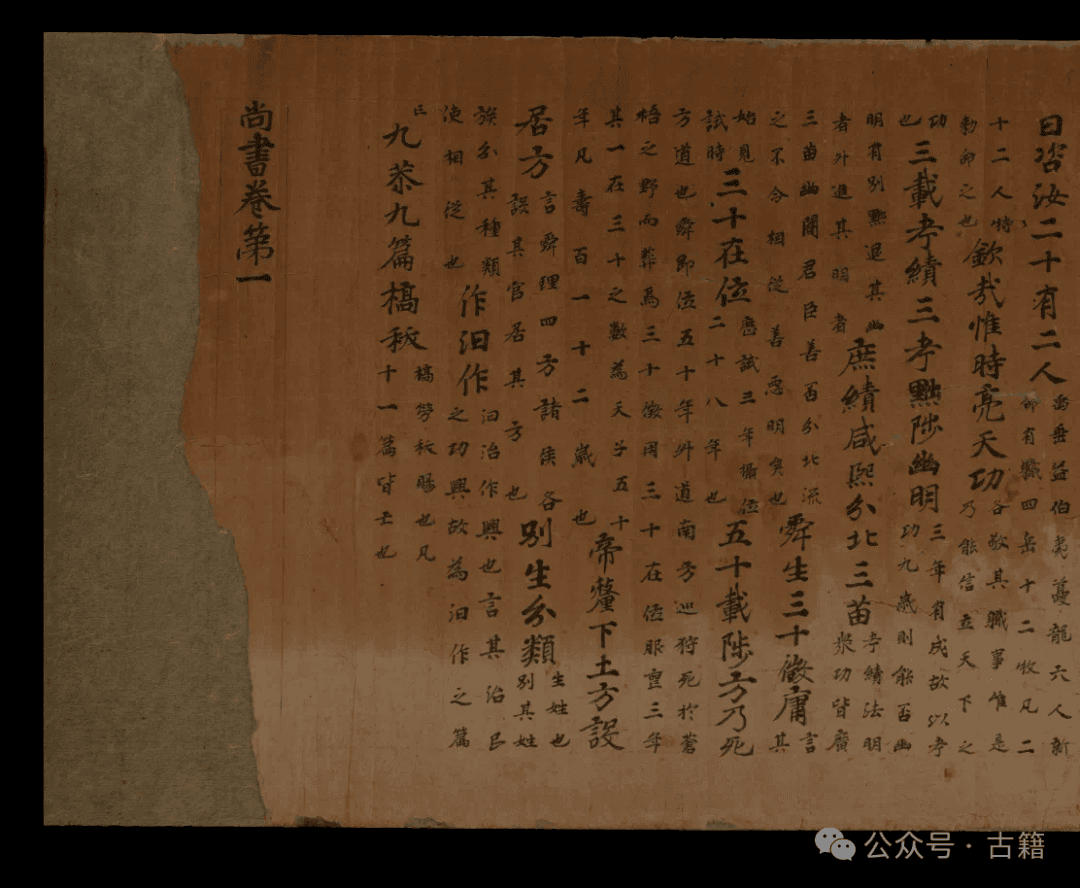 曰咨汝二十有二人禹垂益伯夷夔龍六人新命有職四岳十二牧凡二
十二人特勑命之也欽哉惟時亮天功各敬其職事惟是乃能信立天下之
功也三載考績三考黜陟幽明三年有成故以考功九歲則能否幽
明有別黜退其幽者外進其明者庶績咸熙分北三苗考績法明衆功皆廣
三苗幽闇君臣善否分北流之不令相從善惡明矣也舜生三十徵庸言其
始見試時三十在位歷試三年攝位二十八年也五十載陟方乃死
方道也舜即位五十年外道南方巡狩死於蒼梧之野而葬焉三十徵用三十在位服喪三年
其一在三十之數為天子五十年凡壽百一十二歲也帝釐下土方設
居方言舜理四方諸侯各設其官居其方也別生分類生姓也別其姓
族分其種類使相從也作汨作汨治作興也言其治民之功興故為汨作之篇
亡九共九篇槁飫槁勞飫賜也凡十一篇皆亡也
尚書卷第一
公众号·古籍